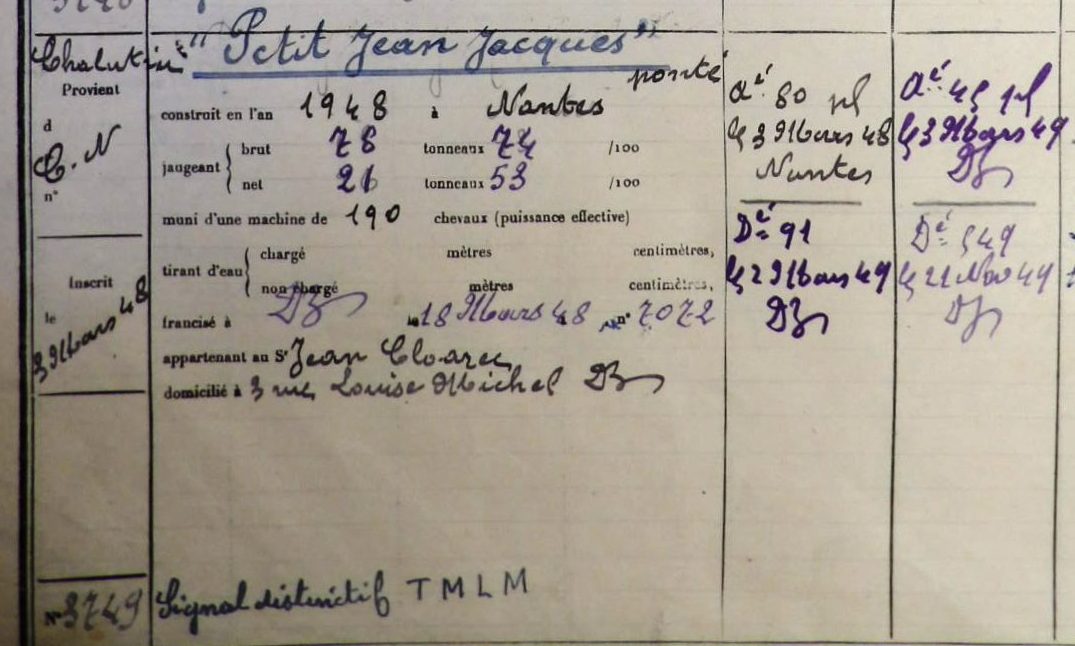 Chalutier "Petit Jean Jacques"
ponté
Provient
d
C. N
n°
construit en l'an 1948 à Nantes
jaugeant brut 78 tonneaux 74 /100
net 26 tonneaux 53 /100
muni d'une machine de 190 chevaux (puissance effective)
tirant d'eau chargé mètres centimètres,
non chargé mètres centimètres,
francisé à DZ le 18 Mars 48 n° 7072
appartenant au Sr Jean Cloarec
domicilié à 3 rue Louise Michel DZ
Inscrit
le
3 Mars 48
N° 3749
Signal distinctif TMLM
Aé 80 pl
le 3 Mars 48
Nantes
Dé 91
le 2 Mars 49
DZ
Aé 45 pl
le 3 Mars 49
DZ
Dé 549
le 21 Nov 49
DZ